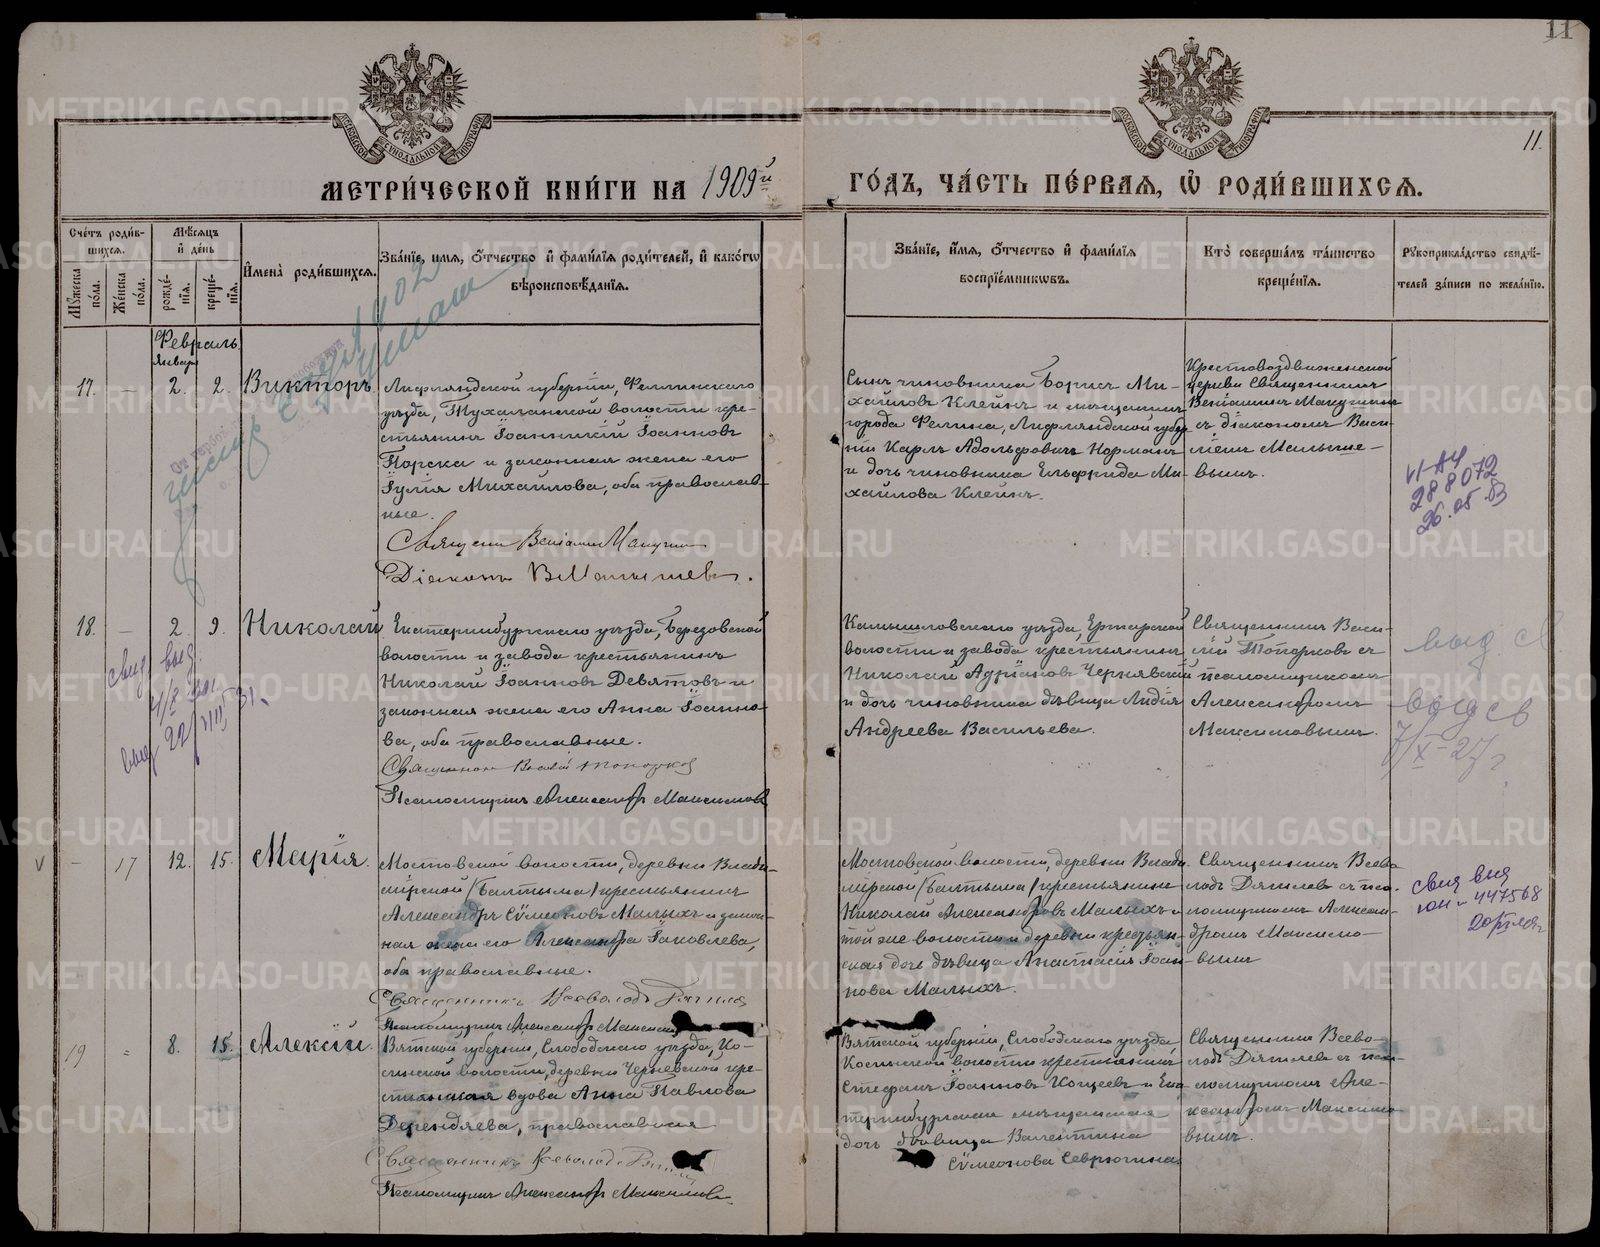 11
11.
МЕТРИ́ЧЕСКОЙ КНИ́ГИ НА 1909й
ГО́ДЪ, ЧА́СТЬ ПЕ́РВАЯ, Ѡ҆ РОДИ́ВШИХСЯ.
Сче́тъ роди́в-
шихся.
Мꙋ́жеска по́ла.
Же́нска по́ла.
Мѣ́сяцъ
и҆ де́нь
рожде́-
нїя.
креще́-
нїя.
И҆мена̀ роди́вшихся.
Зва́нїе, и҆мя, ѻ҆́тчество и҆ фами́лїя роди́телей, и҆ како́гѡ
вѣроисповѣ́данїя.
Зва́нїе, и҆́мя, ѻ҆́тчество и҆ фами́лїя
воспрїе́мникѡвъ.
Кто̀ соверша́лъ та́инство
креще́нїя.
Рꙋкоприкла́дство свидѣ́-
телей за́писи по жела́нїю.
Февраль
Январь
17. — 2. 2. Викторъ
Лифляндской губерніи, Феллинскаго
уѣзда, Тухаланской волости кре-
стьянинъ Іоанникій Іоанновъ
Порска и законная жена его
Іулія Михаилова, оба православ-
ные.
Священ Веніаминъ Макушинъ
Діаконъ В Малышевъ.
Сынъ чиновника Борисъ Ми-
хайловъ Клейнъ и мѣщанинъ
города Феллина, Лифляндской губер
ніи Карлъ Адольфовичъ Норманъ
и дочь чиновника Ельфрида Ми-
хайлова Клейнъ.
Крестовоздвиженской
церкви Священникъ
Веніаминъ Макушинъ
съ діакономъ Васи-
ліемъ Малыше-
вымъ.
288072
26.05.
18. — 2. 9. Николай
Екатеринбургскаго уѣзда, Березовской
волости и завода крестьянинъ
Николай Іоанновъ Девятовъ и
законная жена его Анна Іоанно-
ва, оба православные.
Священникъ Василій Топорковъ
Псаломщикъ Александръ Максимовъ
Камышловскаго уѣзда, Ертарской
волости и завода крестьянинъ
Николай Адріановъ Чернявскій
и дочь чиновника дѣвица Лидія
Андреева Васильева.
Священникъ Васи-
лій Топорковъ съ
псаломщикомъ
Александромъ
Максимовымъ.
выд св
7/X-27г
V — 17 12. 15. Марія.
Мостовской волости, деревни Влади-
мірской (Балтыма) крестьянинъ
Александръ Сѵмеоновъ Малыхъ и закон-
ная жена его Александра Іаковлева,
оба православные.
Священникъ Всеволодъ Дягилевъ
Псаломщикъ Александръ Максимо
Мостовской волости, деревни Влади
мірской (Балтыма) крестьянинъ
Николай Александровъ Малыхъ и
той же волости и деревни крестьян-
ская дочь дѣвица Анастасія Іоан-
нова Малыхъ.
Священникъ Всево
лодъ Дягилевъ съ пса-
ломщикомъ Алексан-
дромъ Максимо-
вымъ
свид выд
447568
19 = 8. 15. Алексій.
Вятской губерніи, Слободскаго уѣзда, Ко-
синской волости, деревни Черневской кре-
стьянская вдова Анна Павлова
Дерендяева, православная
Священникъ Всеволодъ
Псаломщикъ Александръ Максимовъ
Вятской губерніи, Слободскаго уѣзда
Косинской волости крестьянинъ
Стефанъ Іоанновъ Кощеевъ и Ека
теринбургская мѣщанская
дочь дѣвица Валентина
Сѵмеонова Севрюгина
Священникъ Всево-
лодъ Дягилевъ съ пса-
ломщикомъ Але-
ксандромъ Максимо
вымъ.
METRIKI.GASO-URAL.RU